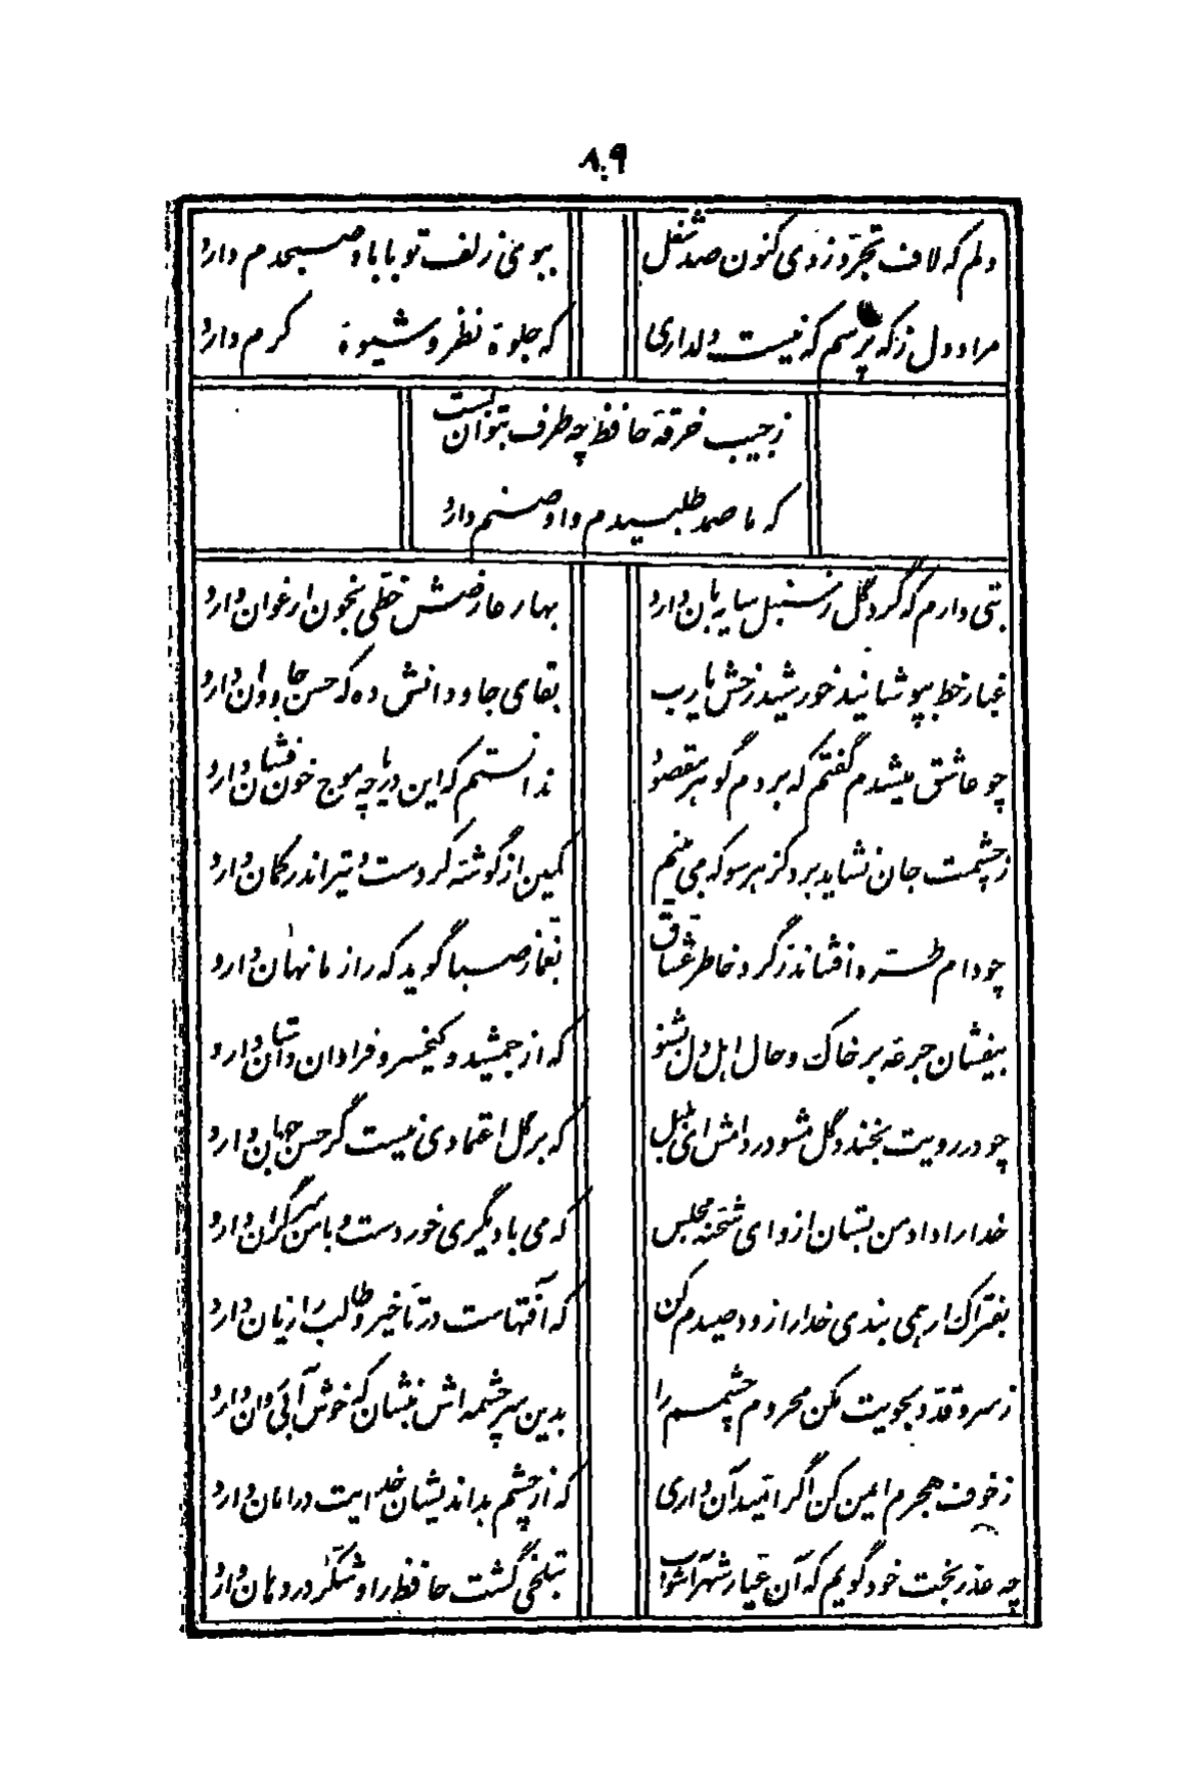 ۸۰۹
دلم که لاف تجرد زدی کنون صد شغل
ببوی زلف تو با باد صبحدم دارد
مراد دل ز که پرسم که نیست دلداری
که جلوهٔ نظر و شیوهٔ کرم دارد
ز جیب خرقهٔ حافظ چه طرف بتوان بست
که ما صمد طلبیدم و او صنم دارد
بتی دارم که گرد گل ز سنبل سایه بان دارد
بهار عارضش خطی بخون ارغوان دارد
غبار خط بپوشانید خورشید رخش یا رب
بقای جاودانش ده که حسن جاودان دارد
چو عاشق میشدم گفتم که بردم گوهر مقصود
ندانستم که این دریا چه موج خون فشان دارد
ز چشمت جان نشاید برد کز هر سو که می بینم
کمین از گوشهٔ کردست و تیر اندر کمان دارد
چو دام طره افشاند ز گرد خاطر عشاق
بغماز صبا گوید که راز ما نهان دارد
بیفشان جرعهٔ بر خاک و حال اهل دل بشنو
که از جمشید و کیخسرو فراوان داستان دارد
چو در رویت بخندد گل مشو در دامش ای بلبل
که بر گل اعتمادی نیست گر حسن جهان دارد
خدا را داد من بستان ازو ای شحنهٔ مجلس
که می با دیگری خوردست و با من سر گران دارد
بفتراک ار همی بندی خدا را زود صیدم کن
که آفتهاست در تاخیر و طالب را زیان دارد
ز سرو قد دلجویت مکن محروم چشمم را
بدین سرچشمه اش بنشان که خوش آبی روان دارد
ز خوف هجرم ایمن کن اگر امید آن داری
که از چشم بداندیشان خدایت در امان دارد
چه عذر بخت خود گویم که آن عیار شهرآشوب
بتلخی کشت حافظ را و شکر در دهان دارد